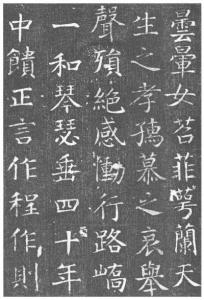 曇暈女苕菲萼蘭天
生之孝孺慕之哀舉
聲殞絕感慟行路
一和琴瑟垂四十年
中饋正言作程作則